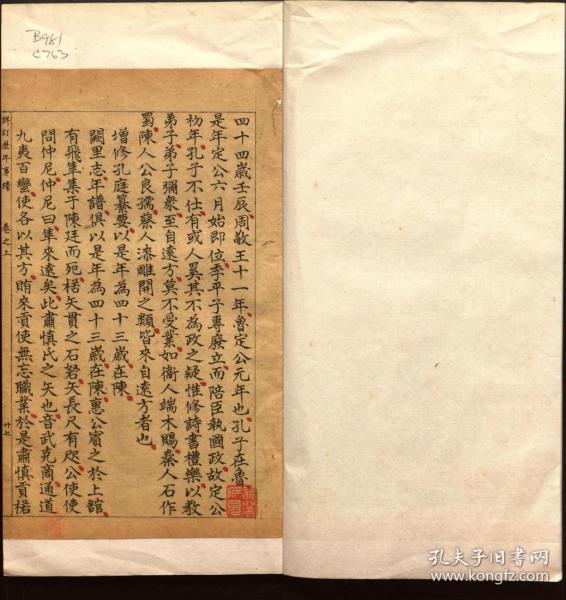 B981
C763
四十四歲壬辰周敬王十一年魯定公元年也孔子在魯
是年定公六月始即位季平子專廢立而陪臣執國政故定公
初年孔子不仕有或人異其不為政之疑惟修詩書禮樂以教
弟子弟子彌衆至自遠方莫不受業如衞人端木賜秦人石作
蜀陳人公良孺蔡人漆雕開之類皆來自遠方者也
增修孔庭纂要以是年為四十三歲在陳
闕里志年譜俱以是年為四十三歲在陳惠公賓之於上舘
有飛隼集于陳廷而死楛矢貫之石砮矢長尺有咫公使使
問仲尼仲尼曰隼來遠矣此肅慎氏之矢也昔武克商通道
九夷百蠻使各以其方賄來貢使無忘職業於是肅慎貢楛
詳訂歷年事蹟 卷之上 廿七
孔夫子旧书网
www.kongfz.com